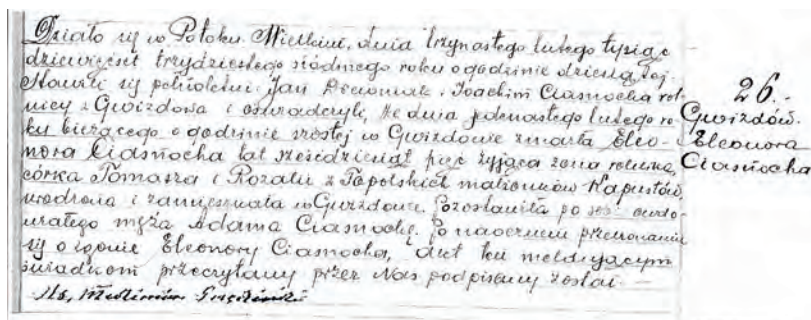 Działo się w Potoku Wielkim, dnia trzynastego lutego tysiąc
dziewięćset trzydziestego siódmego roku o godzinie dziesiątej.
Stawili się pełnoletni: Jan i Joachim Ciasnocha rol-
nicy z Gwizdowa i oświadczyli, że dnia jedenastego lutego ro-
ku bieżącego o godzinie szóstej w Gwizdowie zmarła Eleo-
nora Ciasnocha lat sześćdziesiąt pięć żyjąca żona rolnika,
córka Tomasza i Rozalii z Topolskich małżonków Kapustów,
urodzona i zamieszkała w Gwizdowie. Pozostawiła po sobie owdo-
wiałego męża Adama Ciasnochę. Po naocznem przekonaniu
się o zgonie Eleonory Ciasnocha, akt ten meldującym
świadkom przeczytany przez Nas podpisany został. —
Ks.
26.
Gwizdów.
Eleonora
Ciasnocha